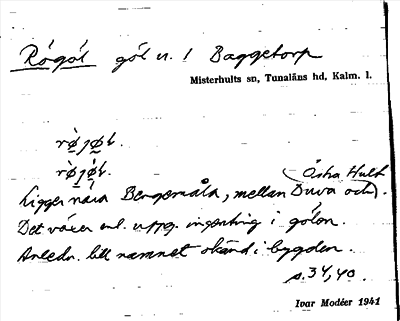 Rögöl göl n. 1 Baggetorp
Misterhults sn, Tunaläns hd, Kalm. l.
rø̀jøl.
rø̀jøl.
Åsha Hult
Ligger nära Bengemåla, mellan Duva och
Det växer enl. uppg. ingenting i gölen.
Anledn. till namnet okänd i bygden.
s. 34, 40.
Ivar Modéer 1941